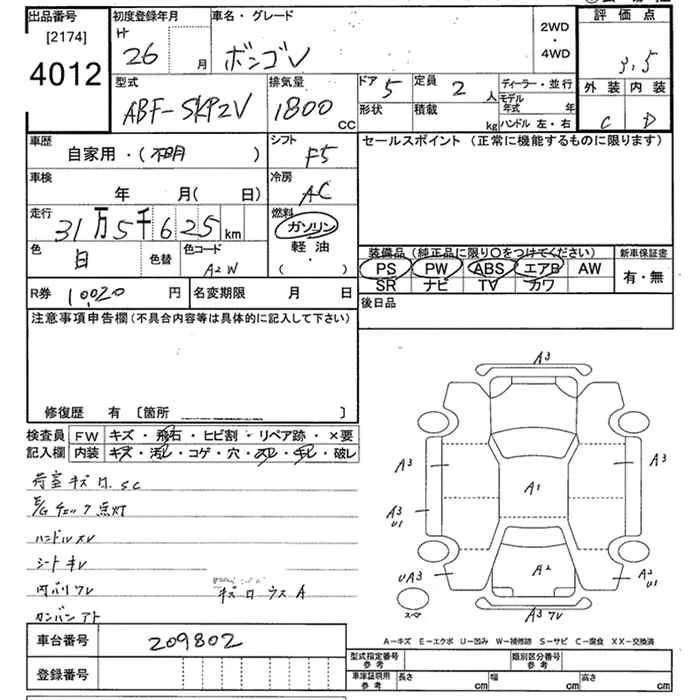 出品番号 初度登録年月 車名・グレード 2WD・4WD 評価点
[2174] H 26 月 ボンゴV 3.5
4012
型式 排気量 ドア 5 定員 2 人 ディーラー・並行 外装 内装
ABF-SKP2V 1800 CC 形状 積載 kg モデル年式 年
ハンドル 左・右 C D
車歴 シフト セールスポイント (正常に機能するものに限ります)
自家用・(不明) F5
車検 冷房
年 月(日) AC
走行 燃料
31万5千625km ガソリン
色 白 色替 色コード A2W 軽油・( )
装備品 (純正品に限り○をつけてください) 新車保証書
PS PW ABS エアB AW 有・無
SR ナビ TV カワ
R券 10,020 円 名変期限 月 日 後日品
注意事項申告欄(不具合内容等は具体的に記入して下さい)
修復歴 有 [箇所 ]
検査員 FW キズ・飛石・ヒビ割・リペア跡・×要
記入欄 内装 キズ・汚レ・コゲ・穴・スレ・キレ・破レ
荷室キズ ロ.SC
E/Gチェック点灯
ハンドルスレ
シートキレ
内バリワレ
キズ ロ ウス A
カンバンアト
A3
A3 A3
A1
A3 U1
UA3 A2 A3 U1
スマ A3 ワレ
A-キズ E-エクボ U-凹み W-補修跡 S-サビ C-腐食 XX-交換済
車台番号 209802
登録番号
型式指定番号 参考 類別区分番号 参考
車庫証明用 参考 長さ cm 幅 cm 高さ cm